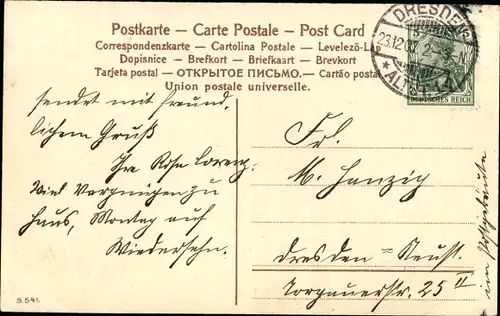 Postkarte – Carte Postale – Post Card
Correspondenzkarte – Cartolina Postale – Levelező-Lap
Dopisnice – Brefkort – Briefkaart – Brevkort
Tarjeta postal – ОТКРЫТОЕ ПИСЬМО. – Cartão postal
Union postale universelle.
DRESDEN
23.12.07. 2-3 N
* ALTST.
DEUTSCHES REICH
sendet mit freund
lichem Gruß
Ihre Rosa Lorenz.
Viel Vergnügen zu
Haus, Montag auf
Wiedersehn.
Frl.
M. Hanzig
Dresden – Neust.
Torgauerstr. 25 II
im Postgebäude
S. 541.